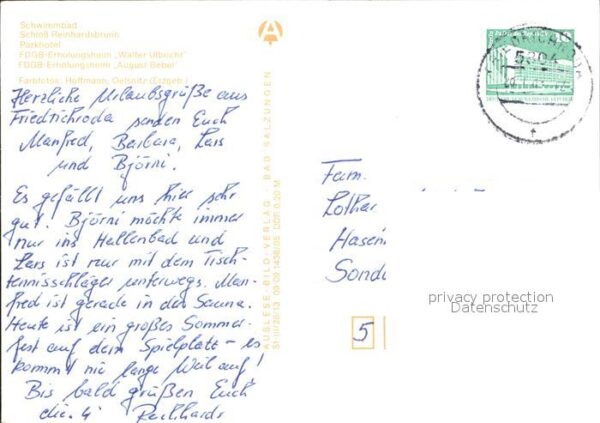 Schwimmbad
Schloß Reinhardsbrunn
Parkhotel
FDGB-Erholungsheim „Walter Ulbricht"
FDGB-Erholungsheim „August Bebel"
Farbfotos: Hoffmann, Oelsnitz (Erzgeb.)
Herzliche Urlaubsgrüße aus
Friedrichroda senden Euch
Manfred, Barbara, Lars
und Björni.
Es gefällt uns hier sehr
gut. Björni möchte immer
nur ins Hallenbad und
Lars ist nur mit dem Tisch-
tennisschläger unterwegs. Man-
fred ist gerade in der Sauna.
Heute ist ein großes Sommer-
fest auf dem Spielplatz – es
kommt nie lange Weil auf!
Bis bald grüßen Euch
die 4
AUSLESE-BILD-VERLAG · BAD SALZUNGEN
DDR 0,20 M
10
Fam.
Lothar
Sond
5
privacy protection
Datenschutz